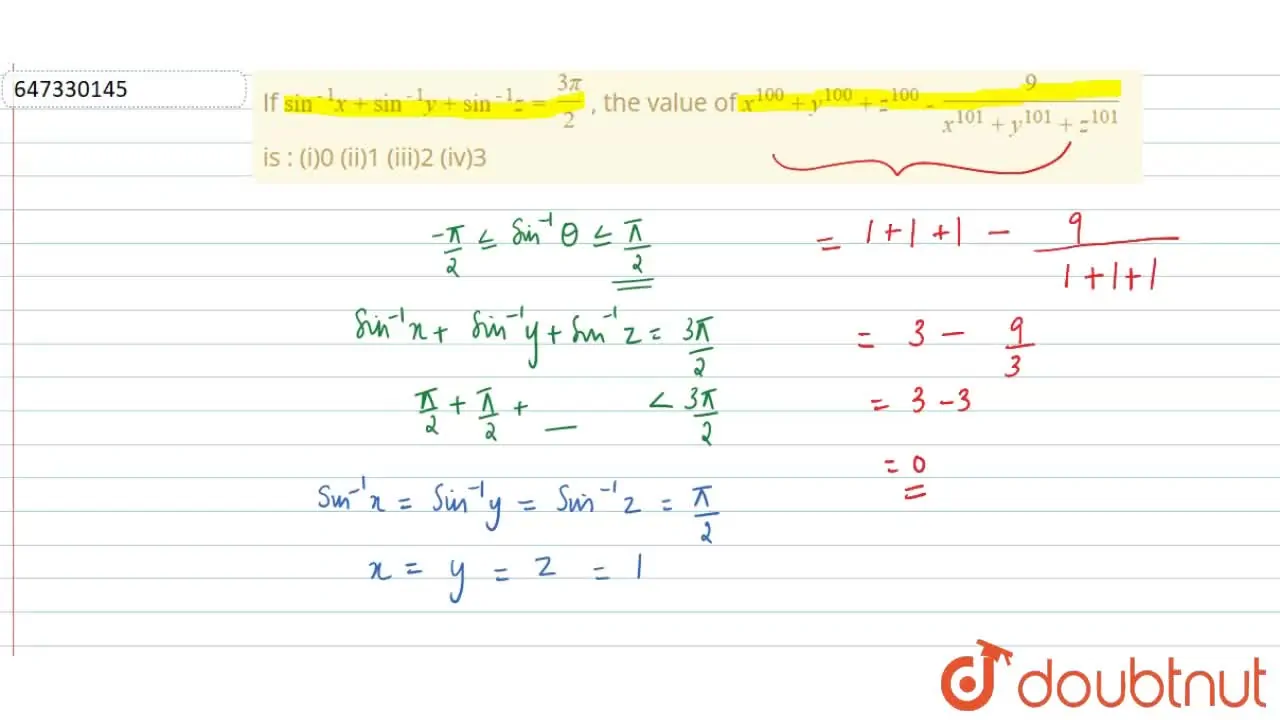 647330145
If sin⁻¹x + sin⁻¹y + sin⁻¹z = 3π/2 , the value of x¹⁰⁰ + y¹⁰⁰ + z¹⁰⁰ - 9/(x¹⁰¹ + y¹⁰¹ + z¹⁰¹)
is : (i)0 (ii)1 (iii)2 (iv)3
-π/2 ≤ Sin⁻¹ θ ≤ π/2
Sin⁻¹x + Sin⁻¹y + Sin⁻¹z = 3π/2
π/2 + π/2 + _ < 3π/2
Sin⁻¹x = Sin⁻¹y = Sin⁻¹z = π/2
x = y = z = 1
= 1 + 1 + 1 - 9/(1+1+1)
= 3 - 9/3
= 3 - 3
= 0
doubtnut